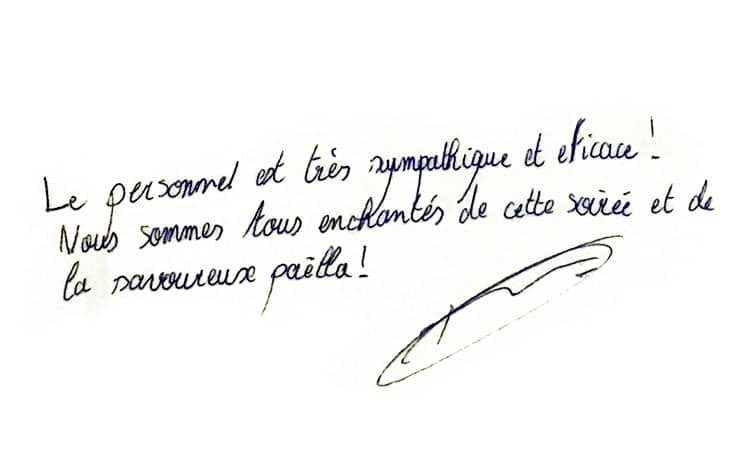 Le personnel est très sympathique et eficace !
Nous sommes tous enchantés de cette soirée et de
la savoureux paëlla !